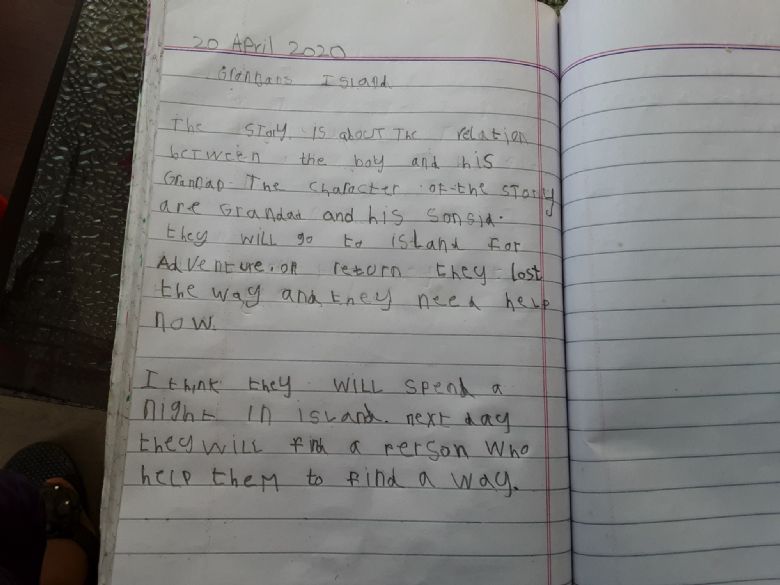 20 April 2020
Grandads Island
The story is about the relation
between the boy and his
Grandad. The character of the story
are Grandad and his son sid.
they will go to island for
Adventure. on return they lost
the way and they need help
now.
I think they will spend a
night in island. next day
they will find a person who
help them to find a way.